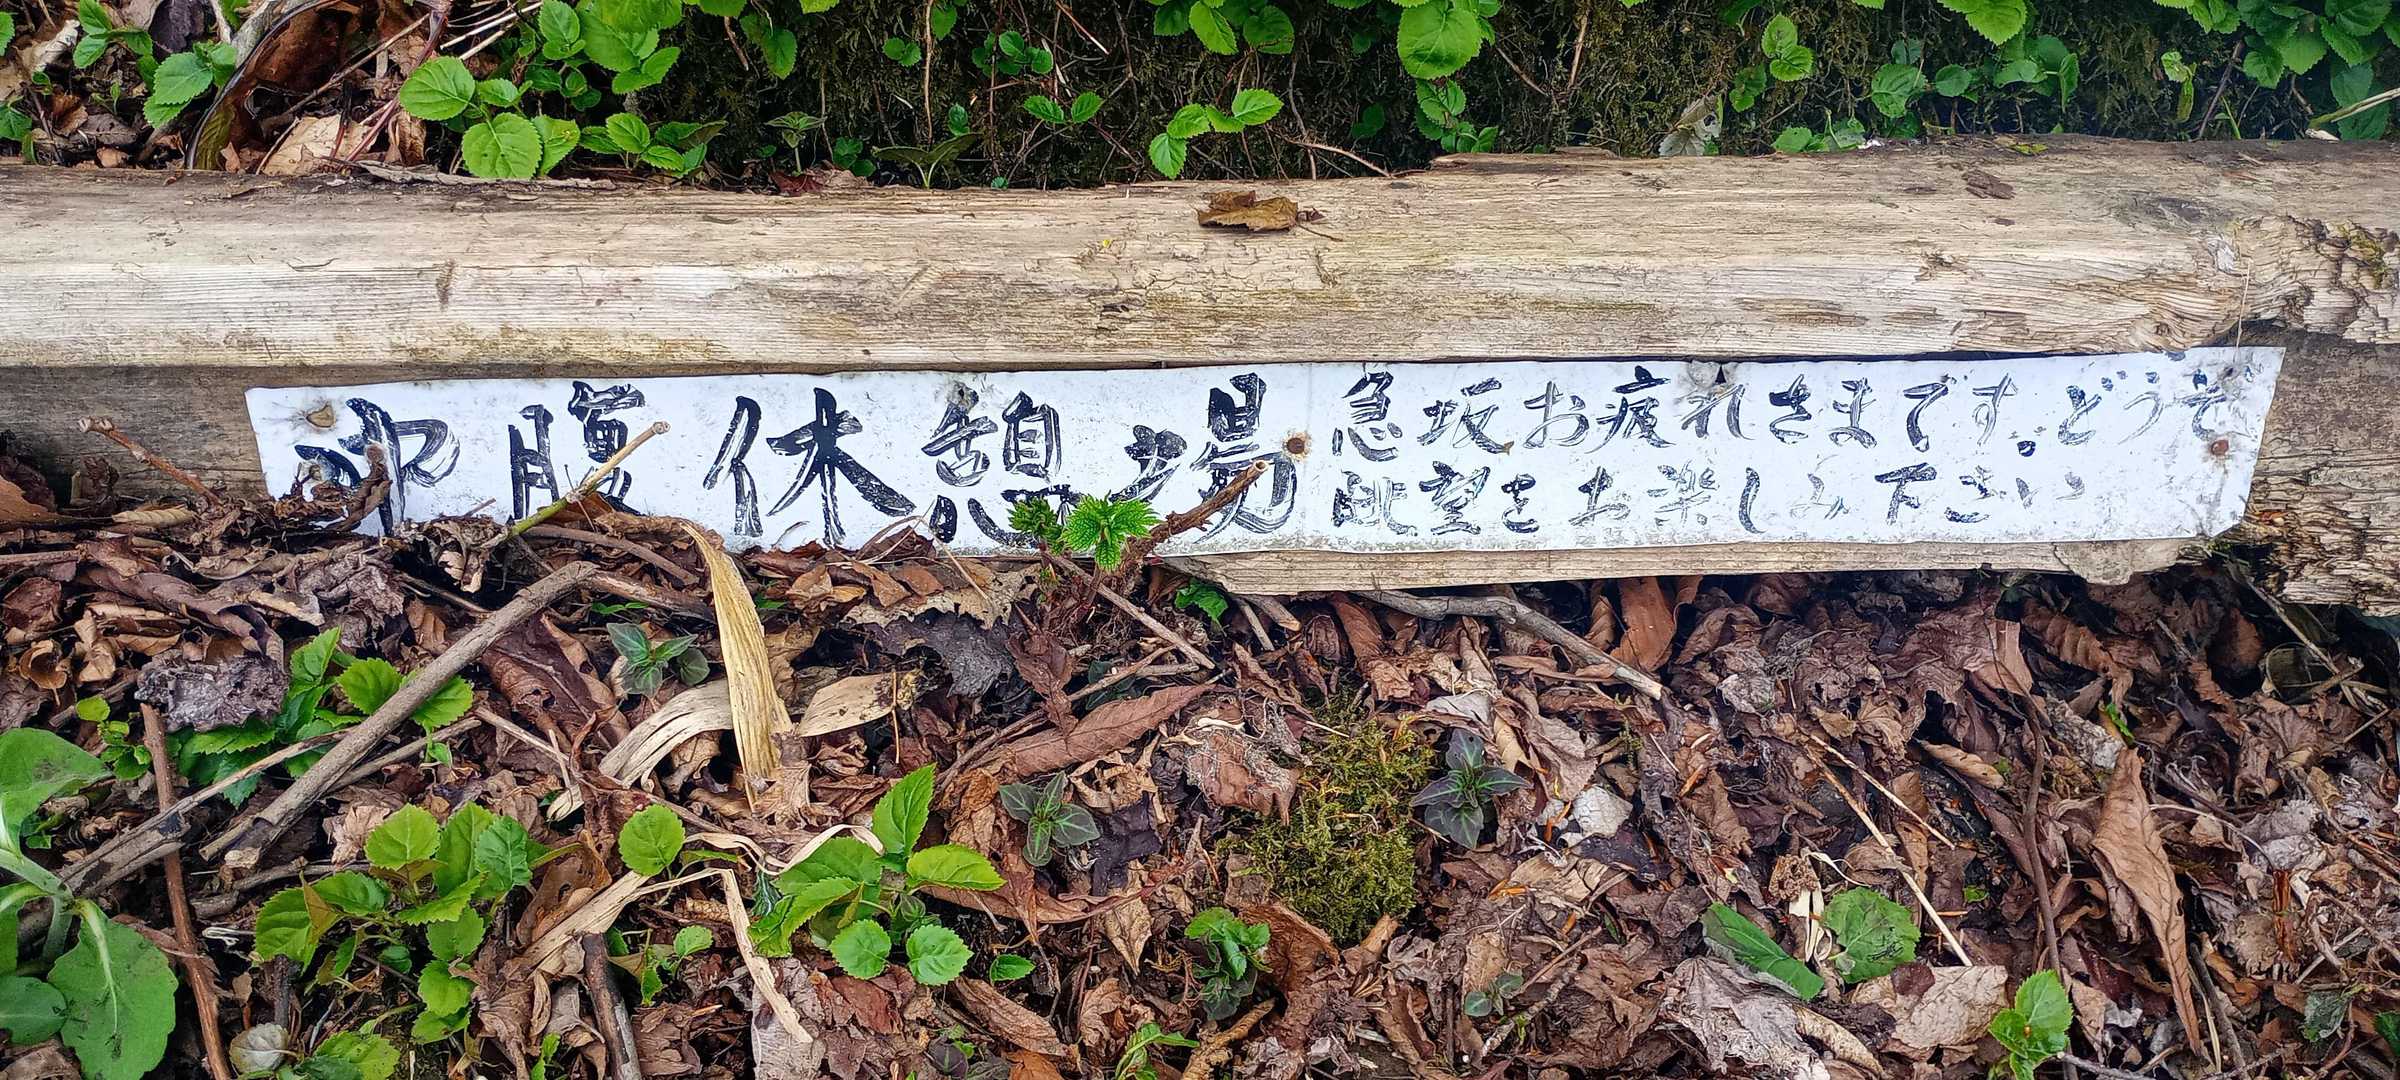 中腹休憩場
急坂お疲れさまです。どうぞ
眺望をお楽しみ下さい